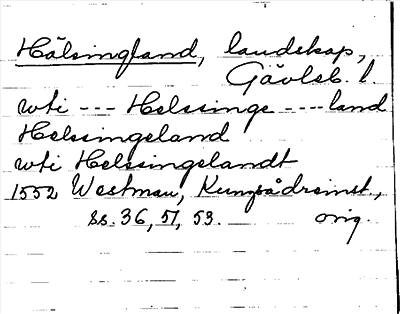 Hälsingland, landskap,
Gävleb. l.
uti --- Helssinge ---- land
Helssingeland
uti Helssingelandt
1552 Westman, Kungsådreinst.,
ss. 36, 51, 53. orig.